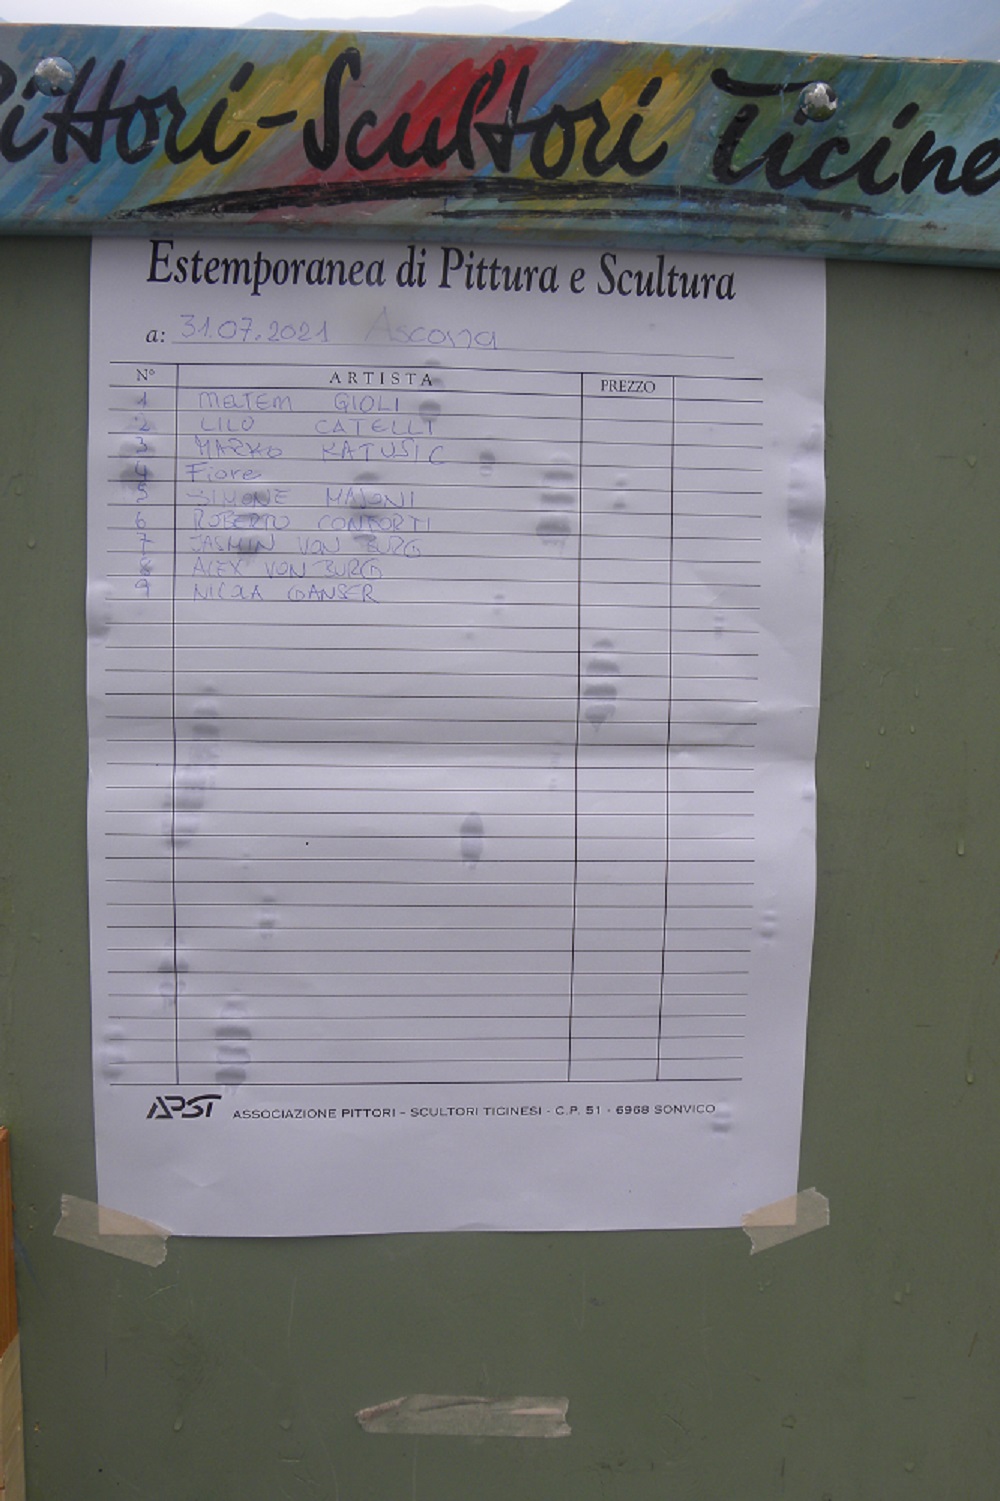 Pittori-Scultori Ticine
Estemporanea di Pittura e Scultura
a: 31.07.2021 Ascona
N° ARTISTA PREZZO
1 MATEM GIOLI
2 LILO CATELLI
3 MARKO KATUSIC
4 Fiore
5 SIMONE MAJONI
6 ROBERTO CONFORTI
7 JASMIN VON BURG
8 ALEX VON BURG
9 NICOLA GANSER
APST ASSOCIAZIONE PITTORI - SCULTORI TICINESI - C.P. 51 - 6968 SONVICO